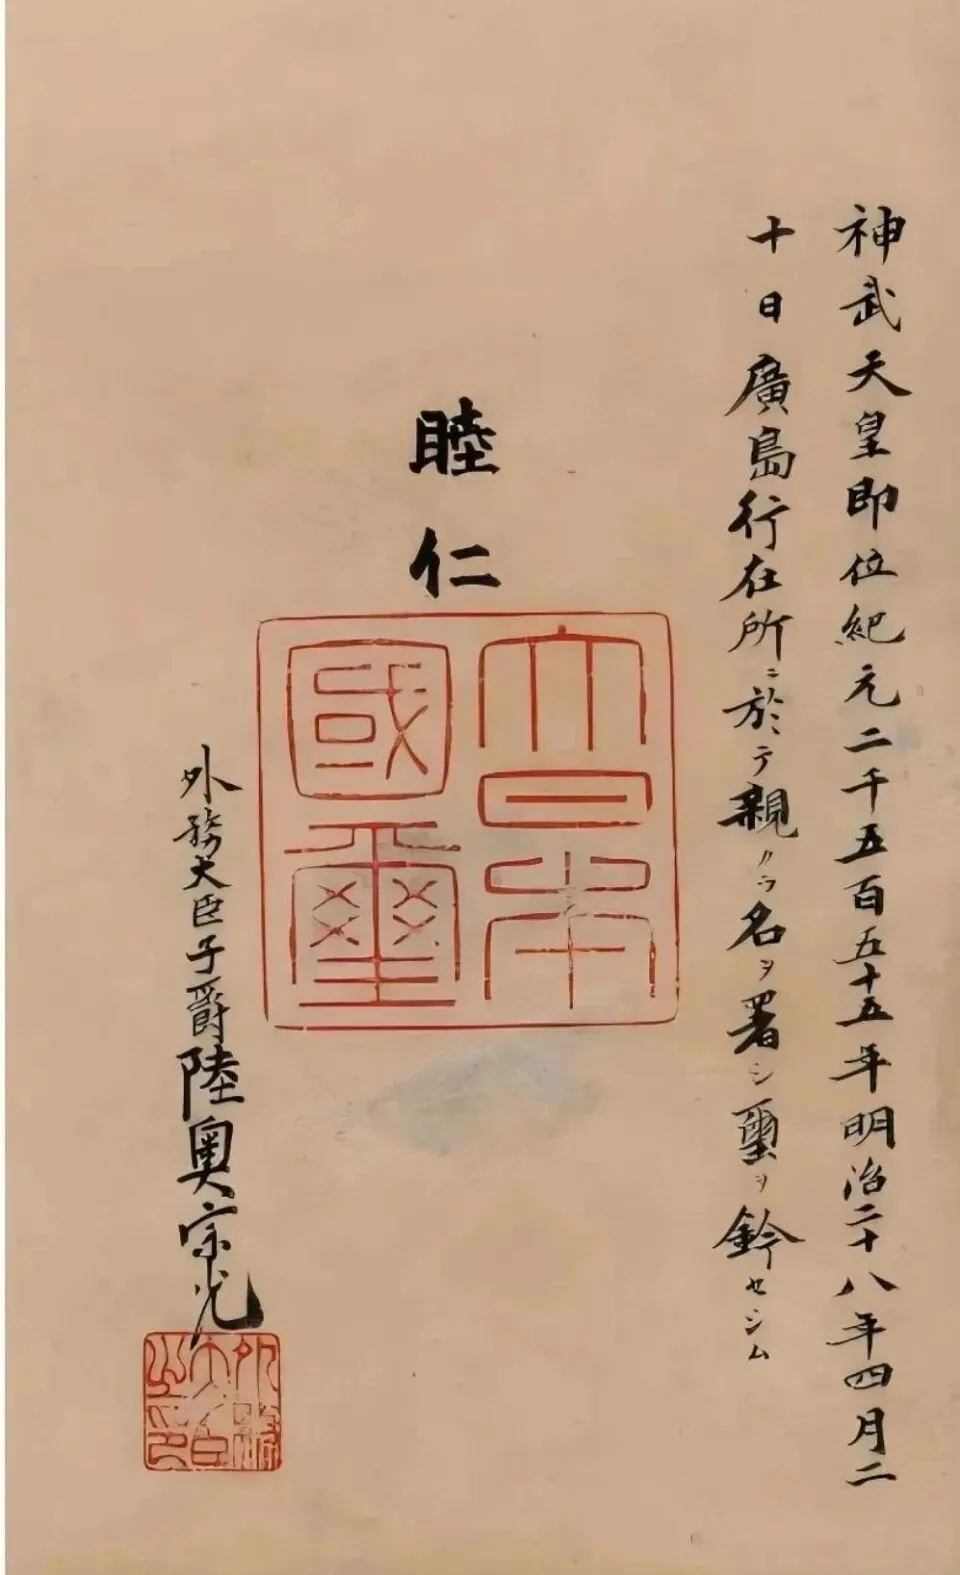 神武天皇即位紀元二千五百五十五年明治二十八年四月二
十日廣島行在所ニ於テ親クラ名ヲ署シ璽ヲ鈐セシム
睦仁
大日本
國璽
外務大臣子爵陸奥宗光
外務
大臣
之印